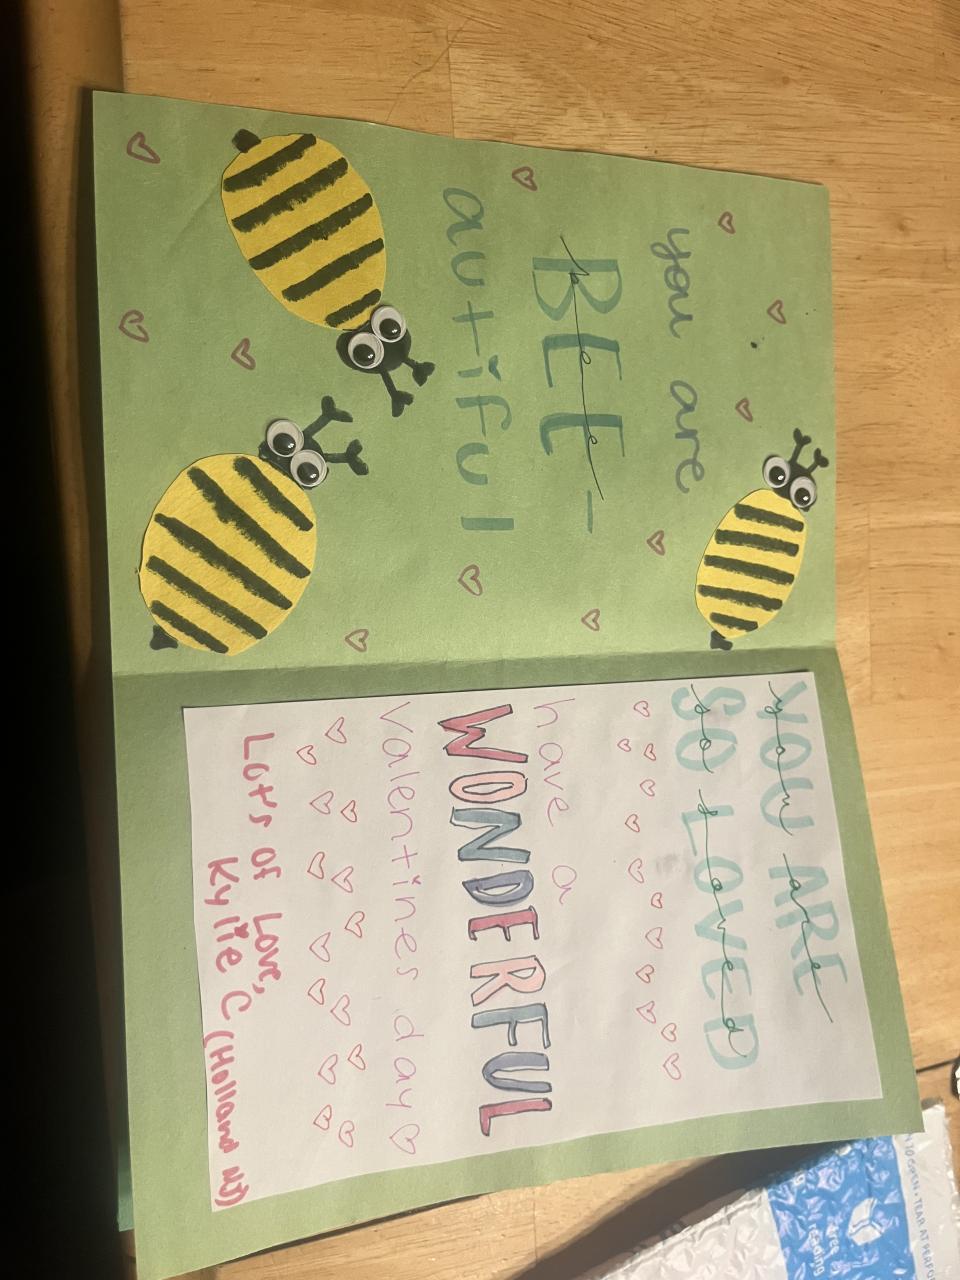 you are
BEE-
Bee
autiful
YOU ARE
you are
SO LOVED
so loved
have a
WONDERFUL
valentines day
Lot's of Love,
Kylie C (Holland
TO OPEN • TEAR AT PERFO